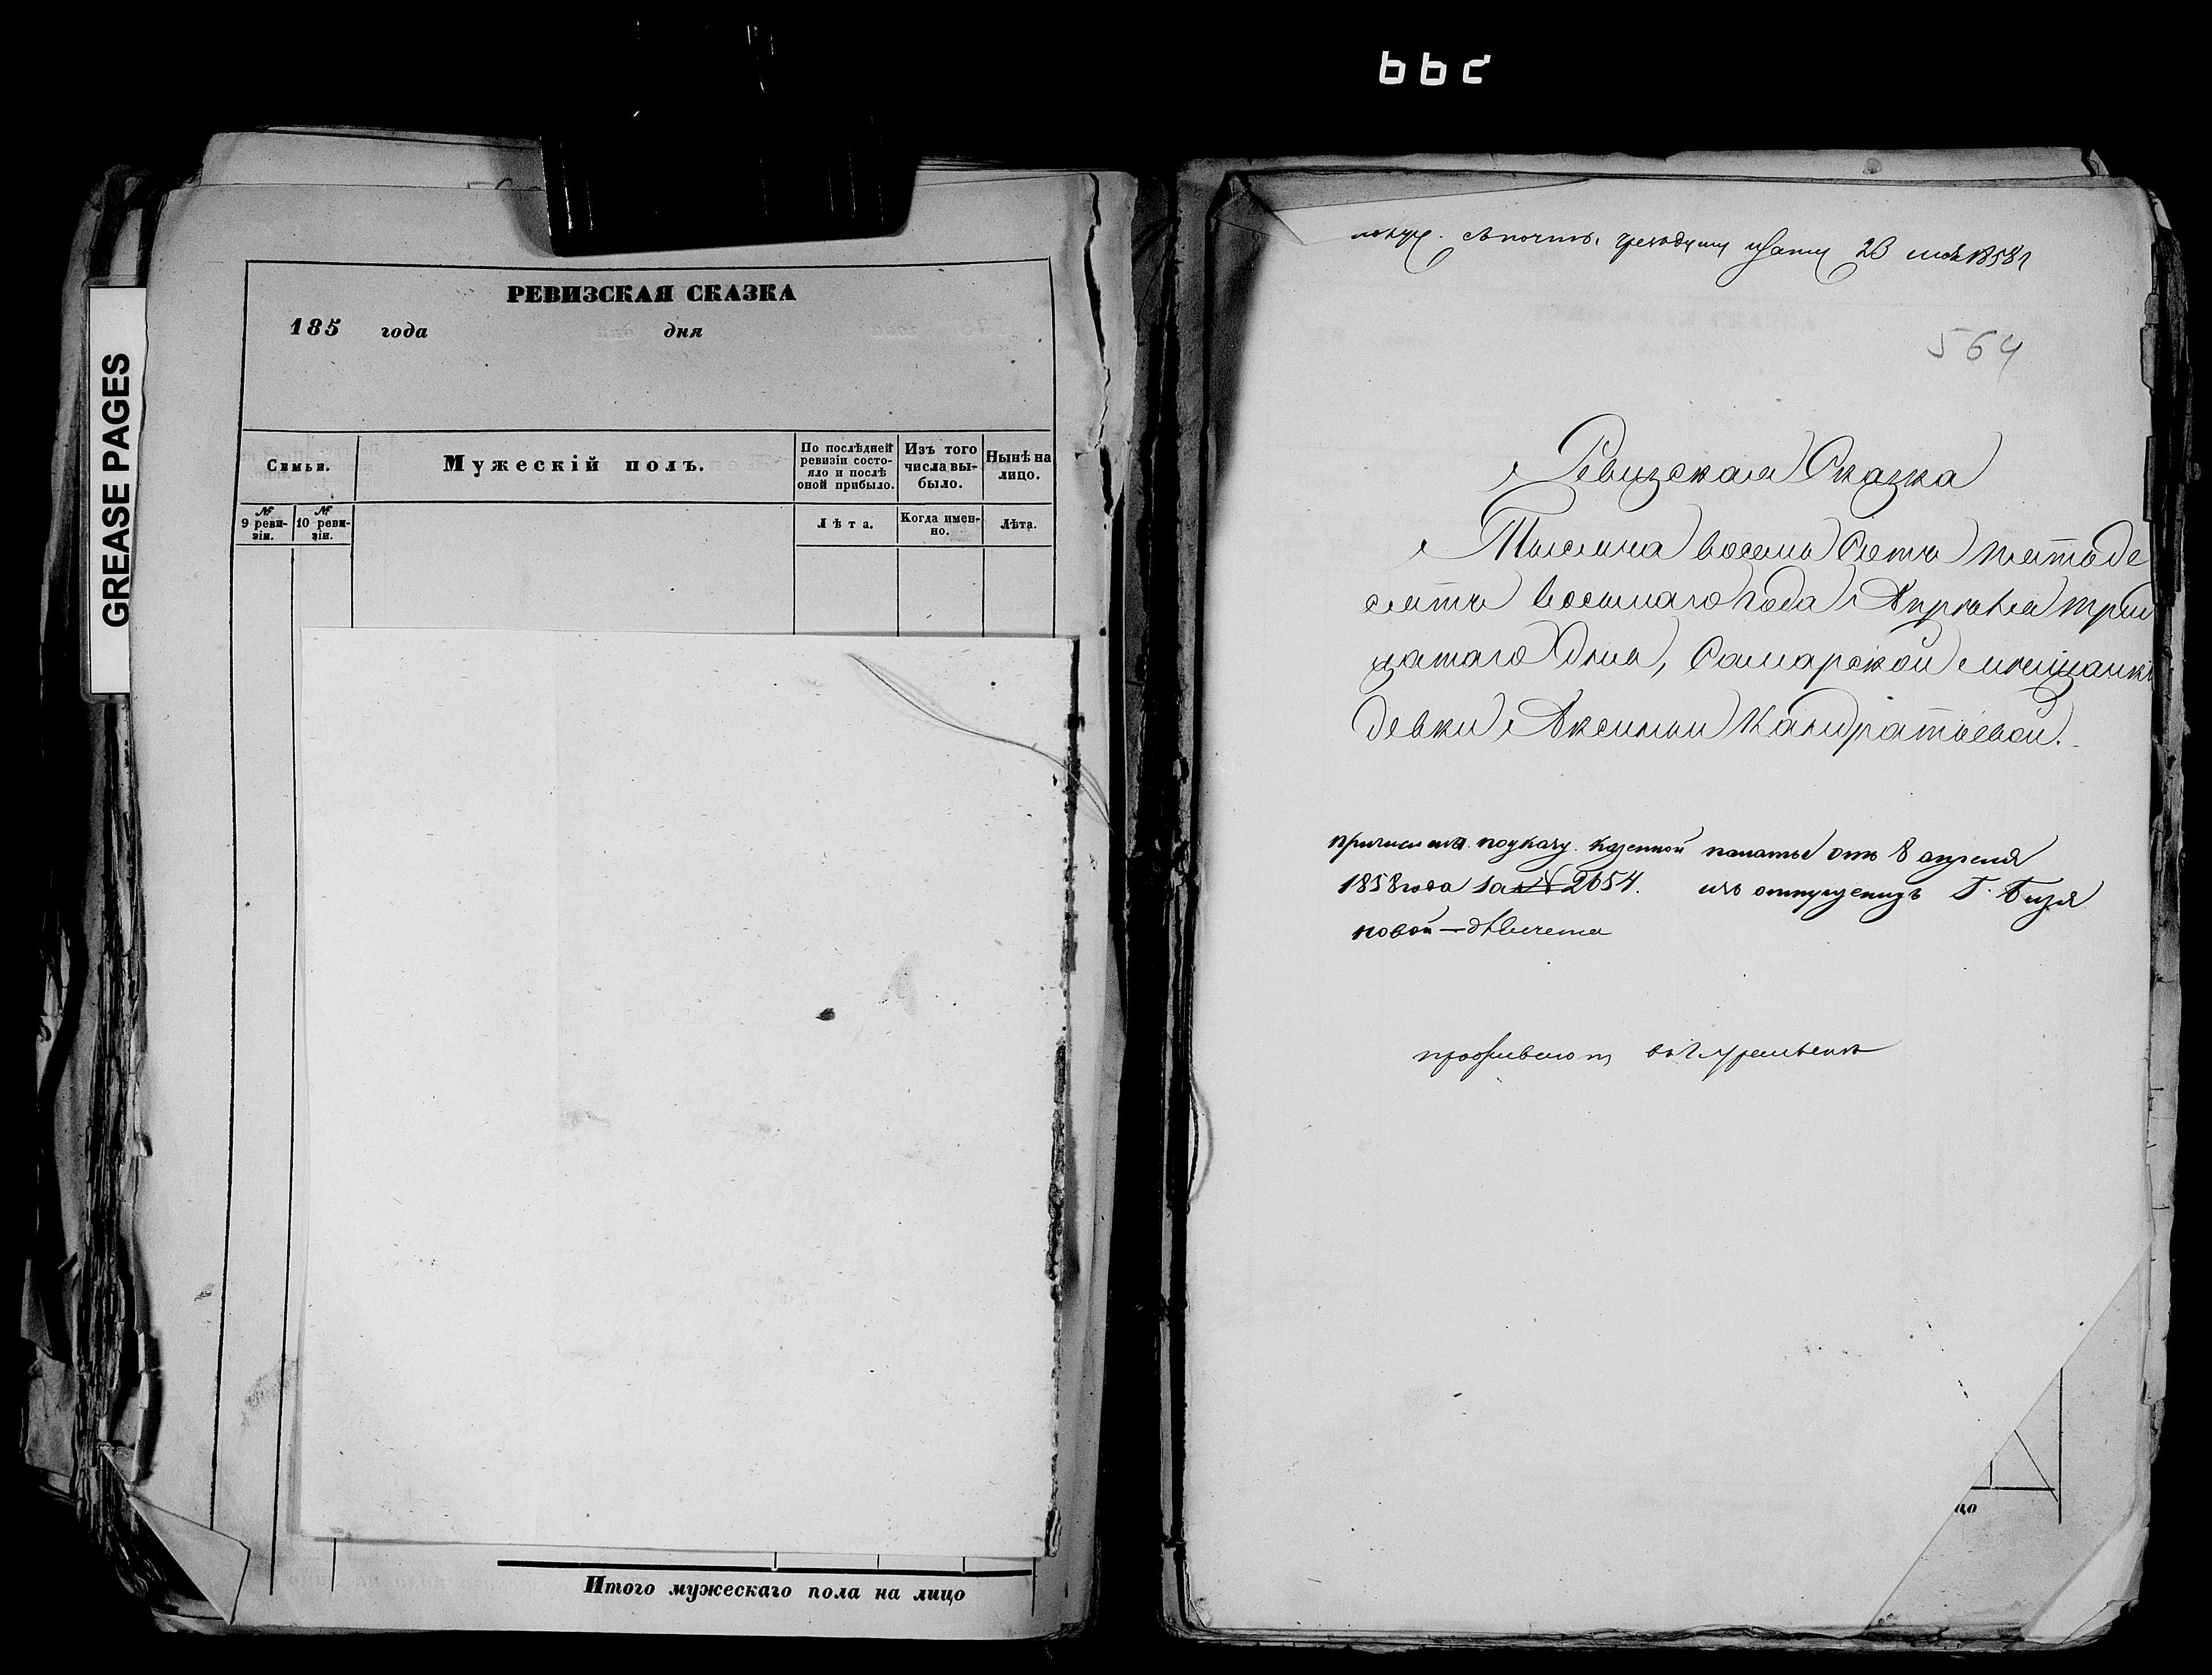 ььс
GREASE PAGES
РЕВИЗСКАЯ СКАЗКА
185 года дня
Семьи.
Мужескій полъ.
По послѣдней ревизіи состояло и послѣ оной прибыло.
Изъ того числа выбыло.
Нынѣ на лицо.
№ 9 ревизіи.
№ 10 ревизіи.
Лѣта.
Когда именно.
Лѣта.
Итого мужескаго пола на лицо
получ. съ почты 23 мая 1858 г
564
Ревизская Сказка
Тысяча восемь сотъ пятьде
сятъ восьмаго года Апрѣля трид
цатаго дня, Самарской мѣщанки
девки Аксиньи Кандратьевой.
причислена по указу казенной палаты отъ 8 апреля
1858 года за № 2654. изъ отпущеныхъ Г.
новой
проживаютъ въ г
цо